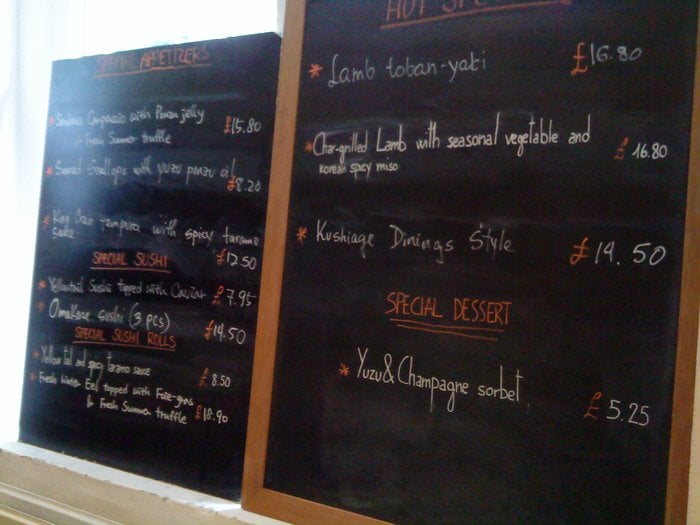 SPECIAL APPETIZERS
Carpaccio with Ponzu jelly
& Fresh Summer truffle £15.80
Scallops with yuzu ponzu oil
£8.20
King Tempura with spicy
Sauce £12.50
SPECIAL SUSHI
Yellowtail Sushi topped with Caviar £7.95
Omakase sushi (3 pcs) £14.50
SPECIAL SUSHI ROLLS
Yellowtail and spicy taramo sauce £8.50
Fresh Water Eel topped with Foie-gras
& Fresh Summer truffle £18.90
HOT
Lamb toban-yaki £16.80
Char-grilled Lamb with seasonal vegetable and
korean spicy miso £16.80
Kushiage Dinings Style £14.50
SPECIAL DESSERT
Yuzu & Champagne sorbet £5.25